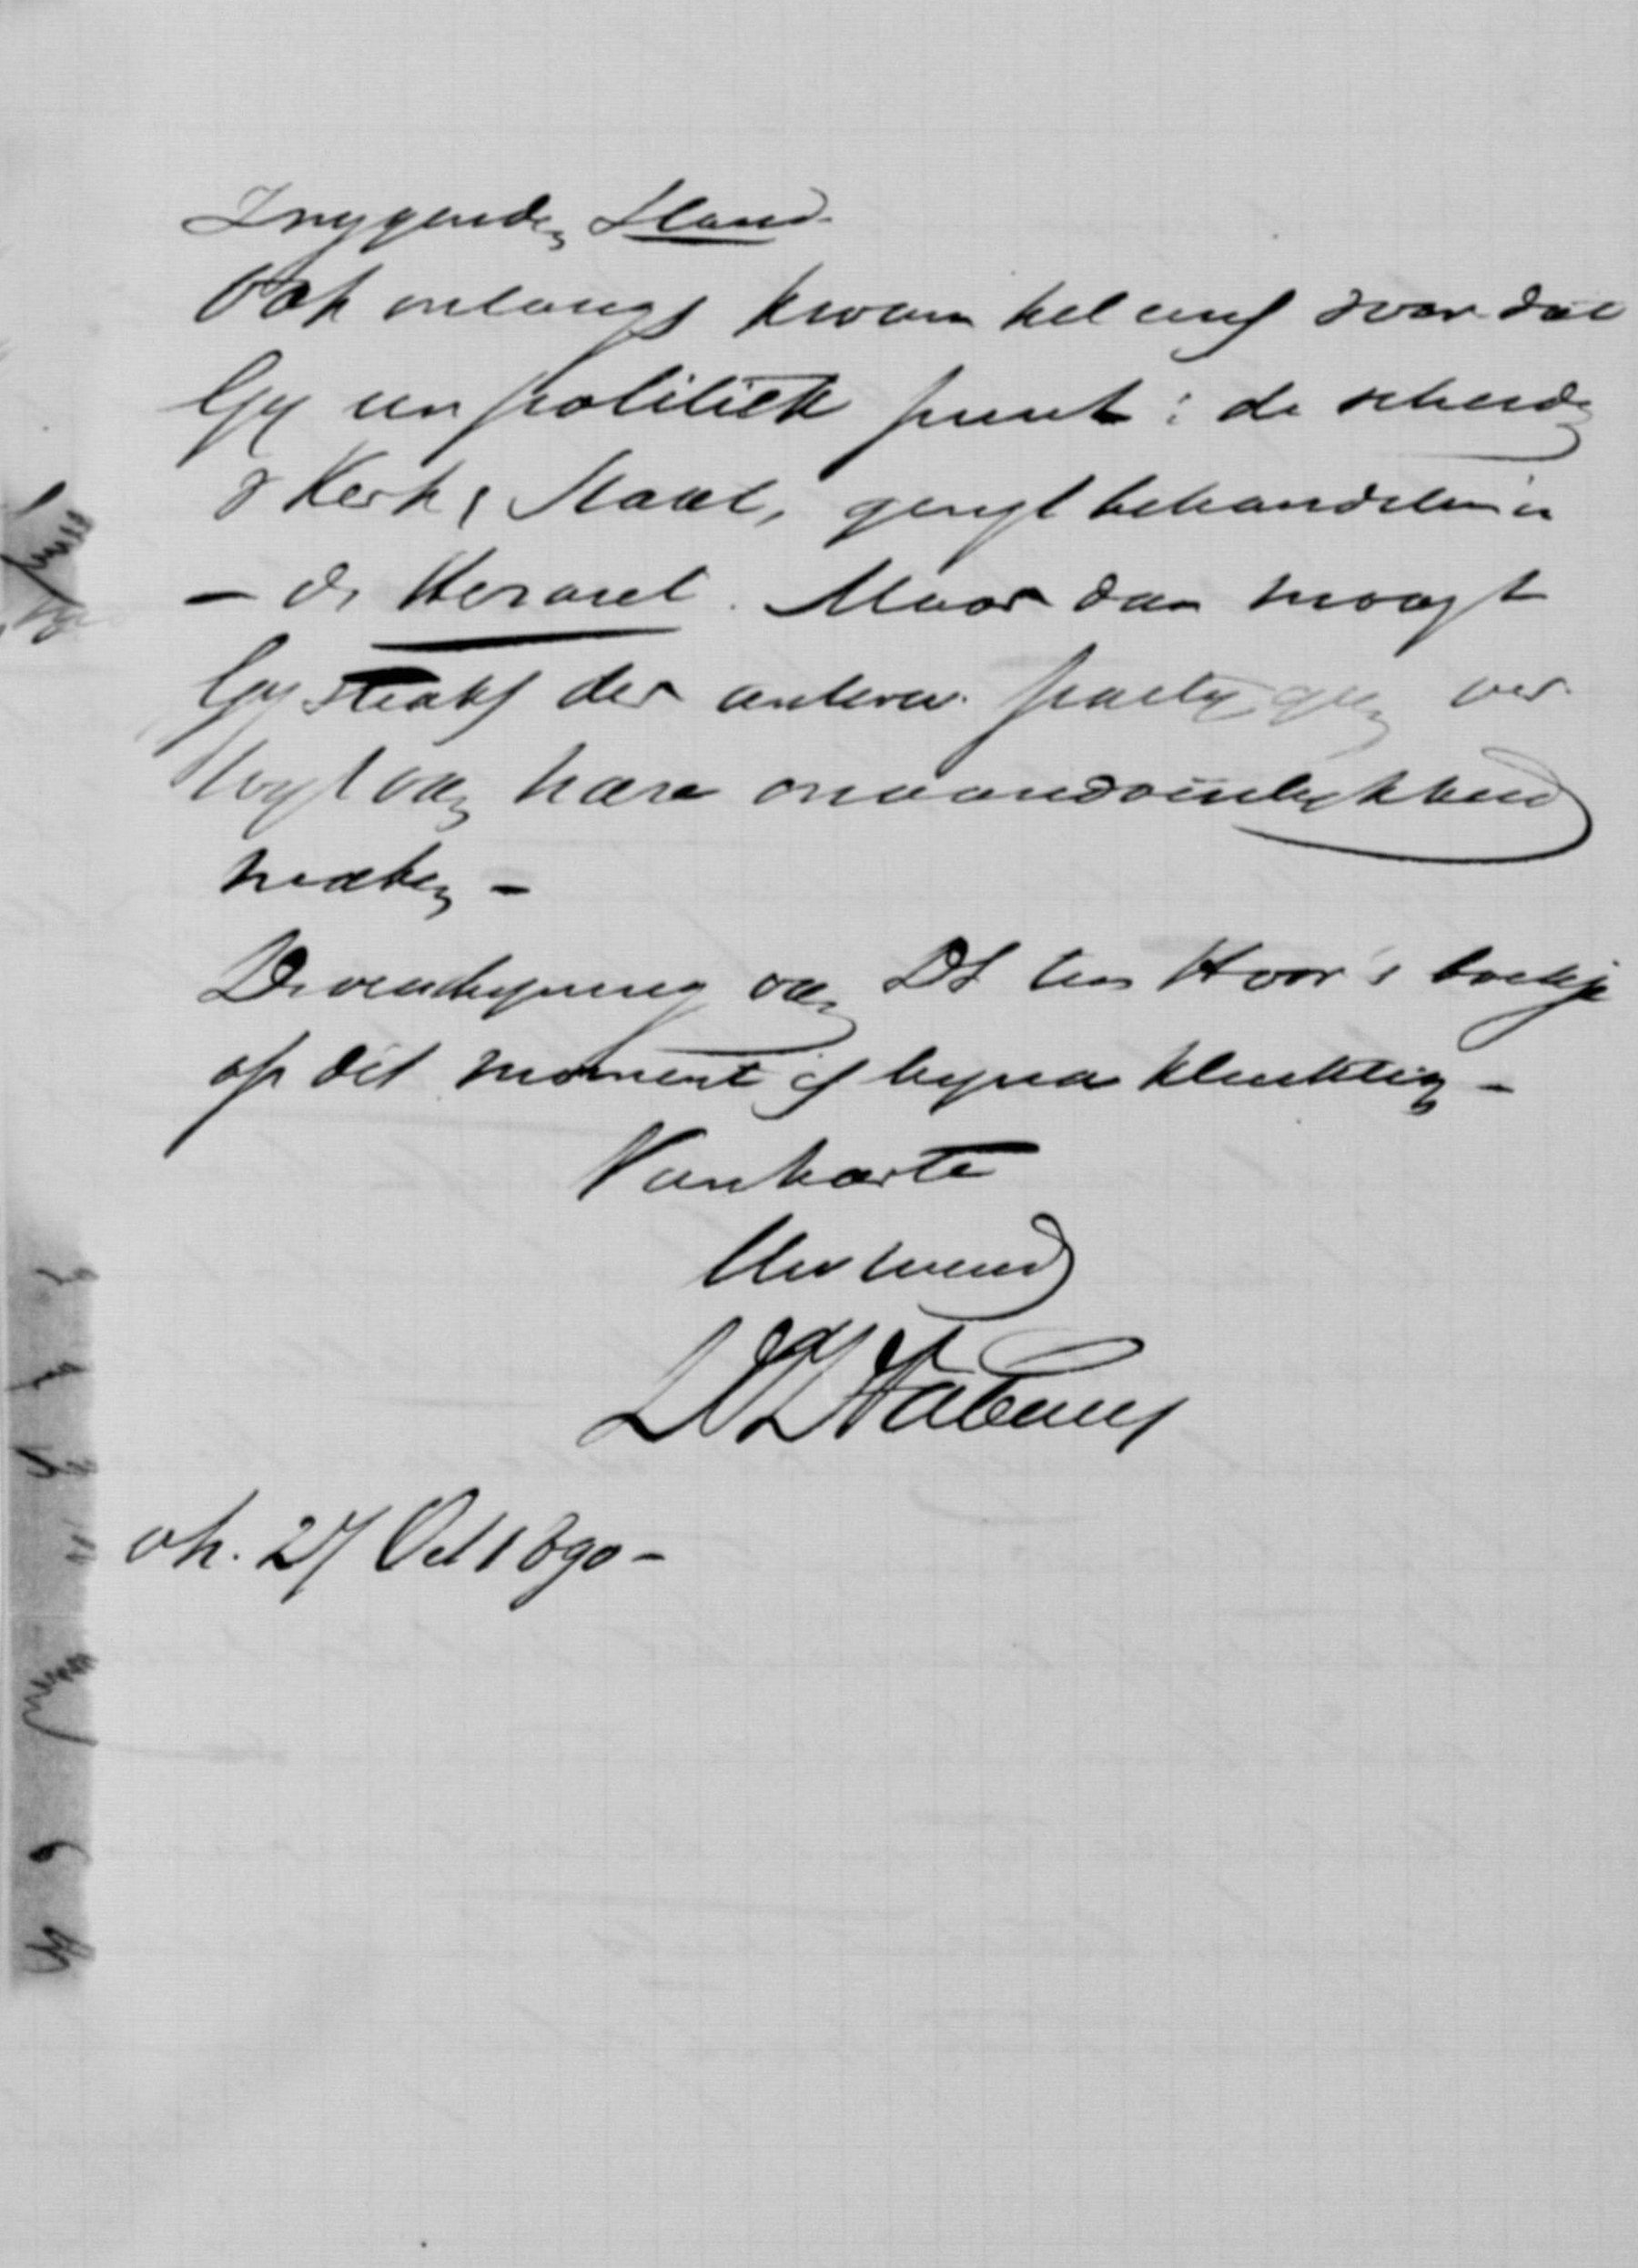 Dreygende Stand.
Ook onlangs kwam het eens voor dat
Gij een politiek punt: de scheidg
v Kerk & Staat, gingt behandelen in
– de Heraut. Maar dan moogt
Gij straks der antirev. partij geen ver
wyt van hare onaandoenlijkheid
maken –
De verschijning van Ds ten Hoor's boekje
op dit moment is bijna kluchtig –
Van harte
Uw vriend
AF de Savornin
oh. 27 Oct 1890 –